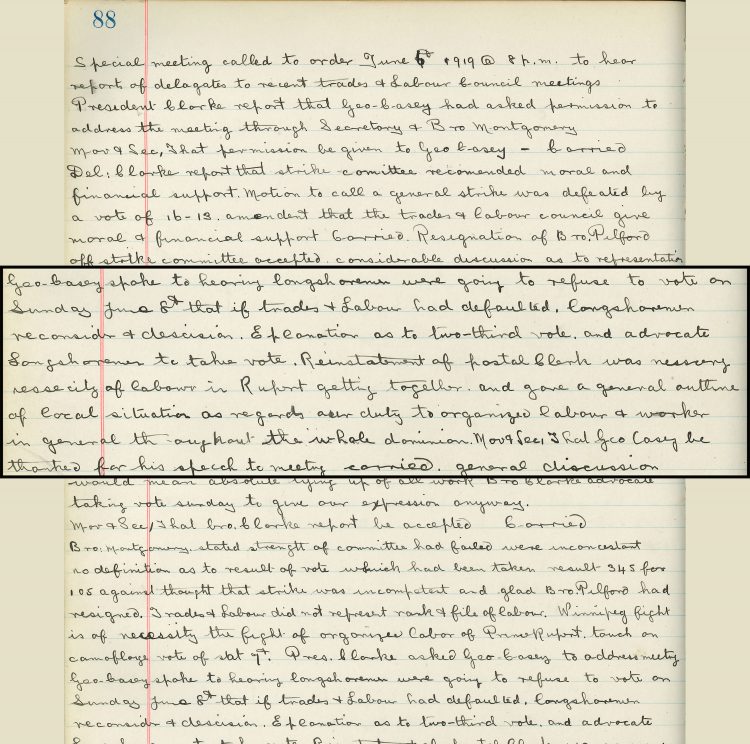 88
Special meeting called to order June 6th 1919 @ 8 p.m. to hear
reports of delagates to recent trades & Labour Council meetings
President Clarke report that Geo-Casey had asked permission to
address the meeting through Secretary & Bro Montgomery
Mov & Sec, That permission be given to Geo Casey - Carried
Del: Clarke report that strike comittee recomended moral and
financial support. Motion to call a general strike was defeated by
a vote of 16-13. amendent that the trades & labour council give
moral & financial support Carried. Resignation of Bro. Pilford
off strike committee accepted. considerable discussion as to representation
Geo-Casey spoke to hearing longshoremen were going to refuse to vote on
Sunday June 8th that if trades & Labour had defaulted, longshoremen
reconsidr & descision. Eplanation as to two-third vote. and advocate
Longshoremen to take vote. Reinstatement of postal Clerk was nessery
ressecity of labour in Rupert getting together. and gave a general outline
of local situation as regards our duty to organized labour & worker
in general th oughout the whole dominion. Mov & Sec, That Geo Casey be
thanked for his speech to meeting carried. general discussion
would mean absolute tying up of all work Bro Clarke advocate
taking vote sunday to give our expression anyway.
Mov & Sec, That bro. Clarke report be accepted Carried
Bro. Montgomery. stated strength of committee had failed were inconsestant
no definition as to result of vote which had been taken result 345 for
105 against thought that strike was incompetent and glad Bro Pilford had
resigned. Trades & Labour did not represent rank & file of labour. Winnipeg fight
is of necessity the fight of organized Labor of Prince Rupert. touch on
camoflage vote of sat 7th. Pres. Clarke asked Geo-Casey to address meetg
Geo-Casey spoke to hearing longshoremen were going to refuse to vote on
Sunday June 8th that if trades & Labour had defaulted, longshoremen
reconsidr & descision. Eplanation as to two-third vote. and advocate